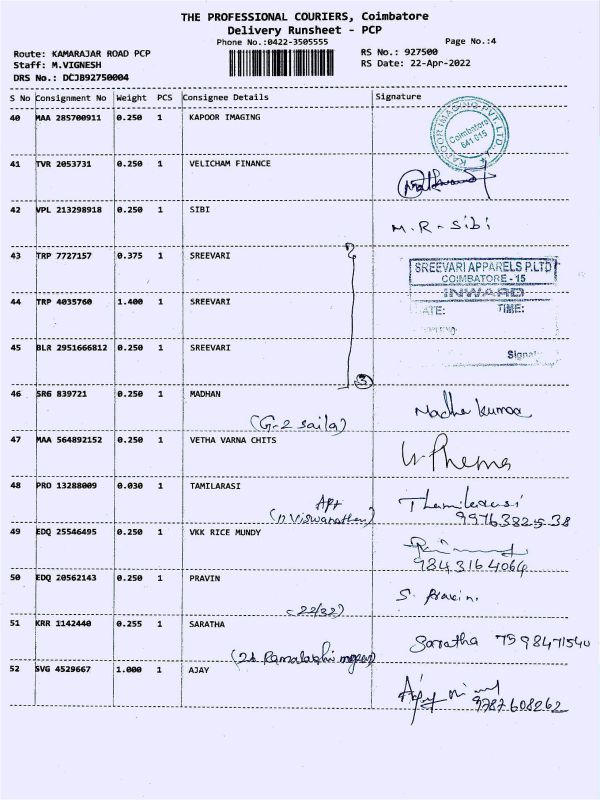 THE PROFESSIONAL COURIERS, Coimbatore
Delivery Runsheet - PCP
Phone No.:0422-3505555
Page No.:4
Route: KAMARAJAR ROAD PCP
RS No.: 927500
Staff: M.VIGNESH
RS Date: 22-Apr-2022
DRS No.: DCJB92750004
S No Consignment No Weight PCS Consignee Details Signature
40 MAA 285700911 0.250 1 KAPOOR IMAGING
KAPOOR IMAGING PVT. LTD
Coimbatore
641 015
41 TVR 2053731 0.250 1 VELICHAM FINANCE
42 VPL 213298918 0.250 1 SIBI
M.R-Sibi
43 TRP 7727157 0.375 1 SREEVARI
SREEVARI APPARELS P.LTD
COIMBATORE - 15
INWARD
44 TRP 4035760 1.400 1 SREEVARI
DATE: TIME:
45 BLR 2951666812 0.250 1 SREEVARI
Signat
3
46 SRG 839721 0.250 1 MADHAN
Madhu kumar
(G-2 saila)
47 MAA 564892152 0.250 1 VETHA VARNA CHITS
48 PRO 13288009 0.030 1 TAMILARASI
Apt
(n Viswanathan)
Thamilarasi
9976382538
49 EDQ 25546495 0.250 1 VKK RICE MUNDY
9843164064
50 EDQ 20562143 0.250 1 PRAVIN
S. Pravin.
22/32)
51 KRR 1142440 0.255 1 SARATHA
Saratha 7598471540
52 SVG 4529667 1.000 1 AJAY
Ajay
9787608262